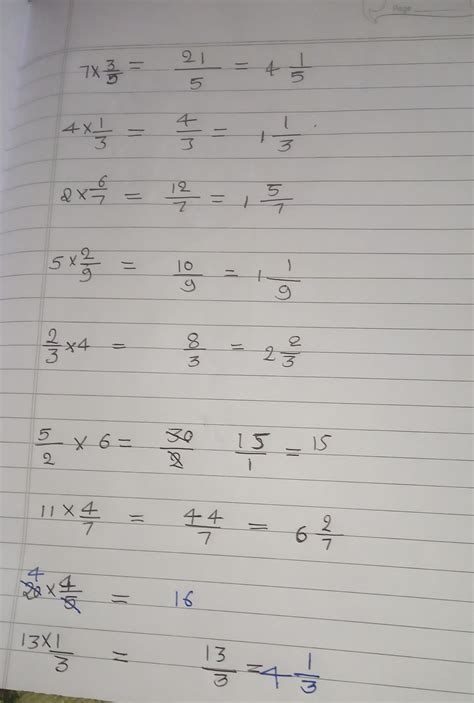 Page
7 × 3/5 = 21/5 = 4 1/5
4 × 1/3 = 4/3 = 1 1/3
2 × 6/7 = 12/7 = 1 5/7
5 × 2/9 = 10/9 = 1 1/9
2/3 × 4 = 8/3 = 2 2/3
5/2 × 6 = 30/2 15/1 = 15
11 × 4/7 = 44/7 = 6 2/7
4 20 × 4/5 = 16
13 × 1/3 = 13/3 = 4 1/3